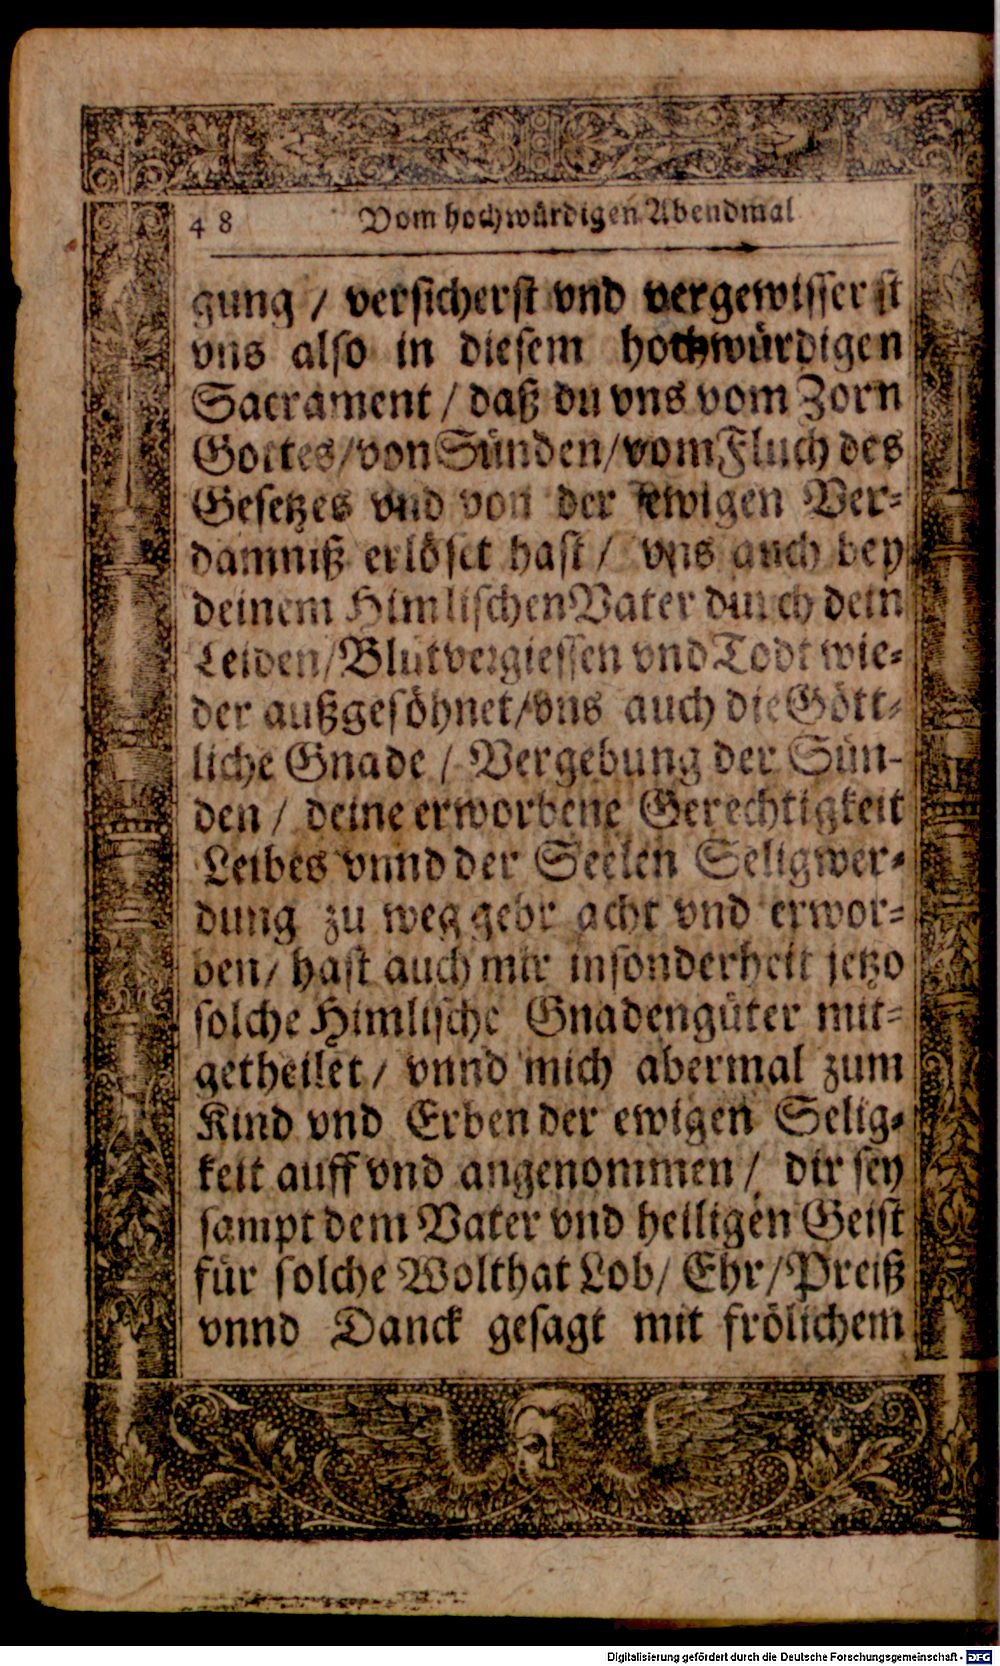 48 Vom hochwürdigen Abendmal
gung / versicherst vnd vergewisserst
vns also in diesem hochwürdigen
Sacrament / daß du vns vom Zorn
Gottes / von Sünden / vom Fluch des
Gesetzes vnd von der ewigen Ver-
damniß erlöset hast / vns auch bey
deinem Himlischen Vater durch dein
Leiden / Blutvergiessen vnd Todt wie-
der außgesöhnet / vns auch die Gött-
liche Gnade / Vergebung der Sün-
den / deine erworbene Gerechtigkeit
Leibes vnnd der Seelen Seligwer-
dung zu weg gebracht vnd erwor-
ben / hast auch mir insonderheit jetzo
solche Himlische Gnadengüter mit-
getheilet / vnnd mich abermal zum
Kind vnd Erben der ewigen Selig-
keit auff vnd angenommen / dir sey
sampt dem Vater vnd heiligen Geist
für solche Wolthat Lob / Ehr / Preiß
vnnd Danck gesagt mit frölichem
Digitalisierung gefördert durch die Deutsche Forschungsgemeinschaft - DFG